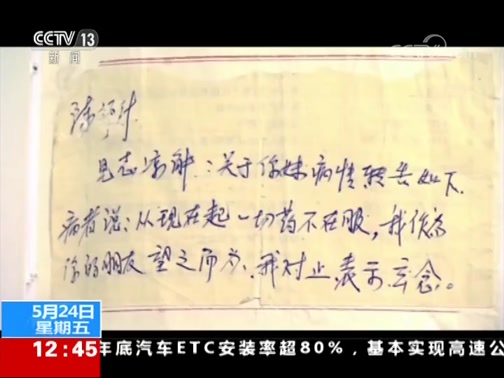 CCTV 13
新闻
CCTV.
见志谅解：关于你妹病情转告如下
病者说：从现在起一切药不在服，我作为
你的朋友望之而，我对止表示玄念。
5月24日
星期五
12:45
年底汽车ETC安装率超80%，基本实现高速公